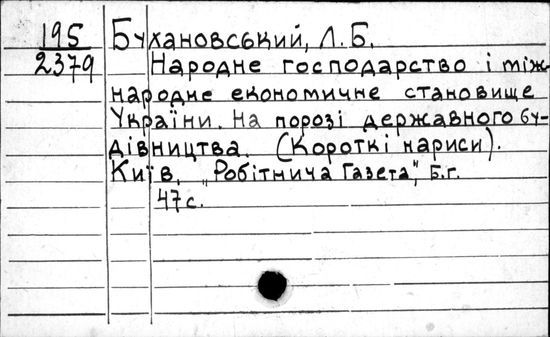 195 Бухановський, Л.Б.
2379 Народне господарство і між-
народне економичне становище
України. На порозі державного бу-
дівництва. (Короткі нариси).
Київ, "Робітнича Газета", Б.г.
47 с.